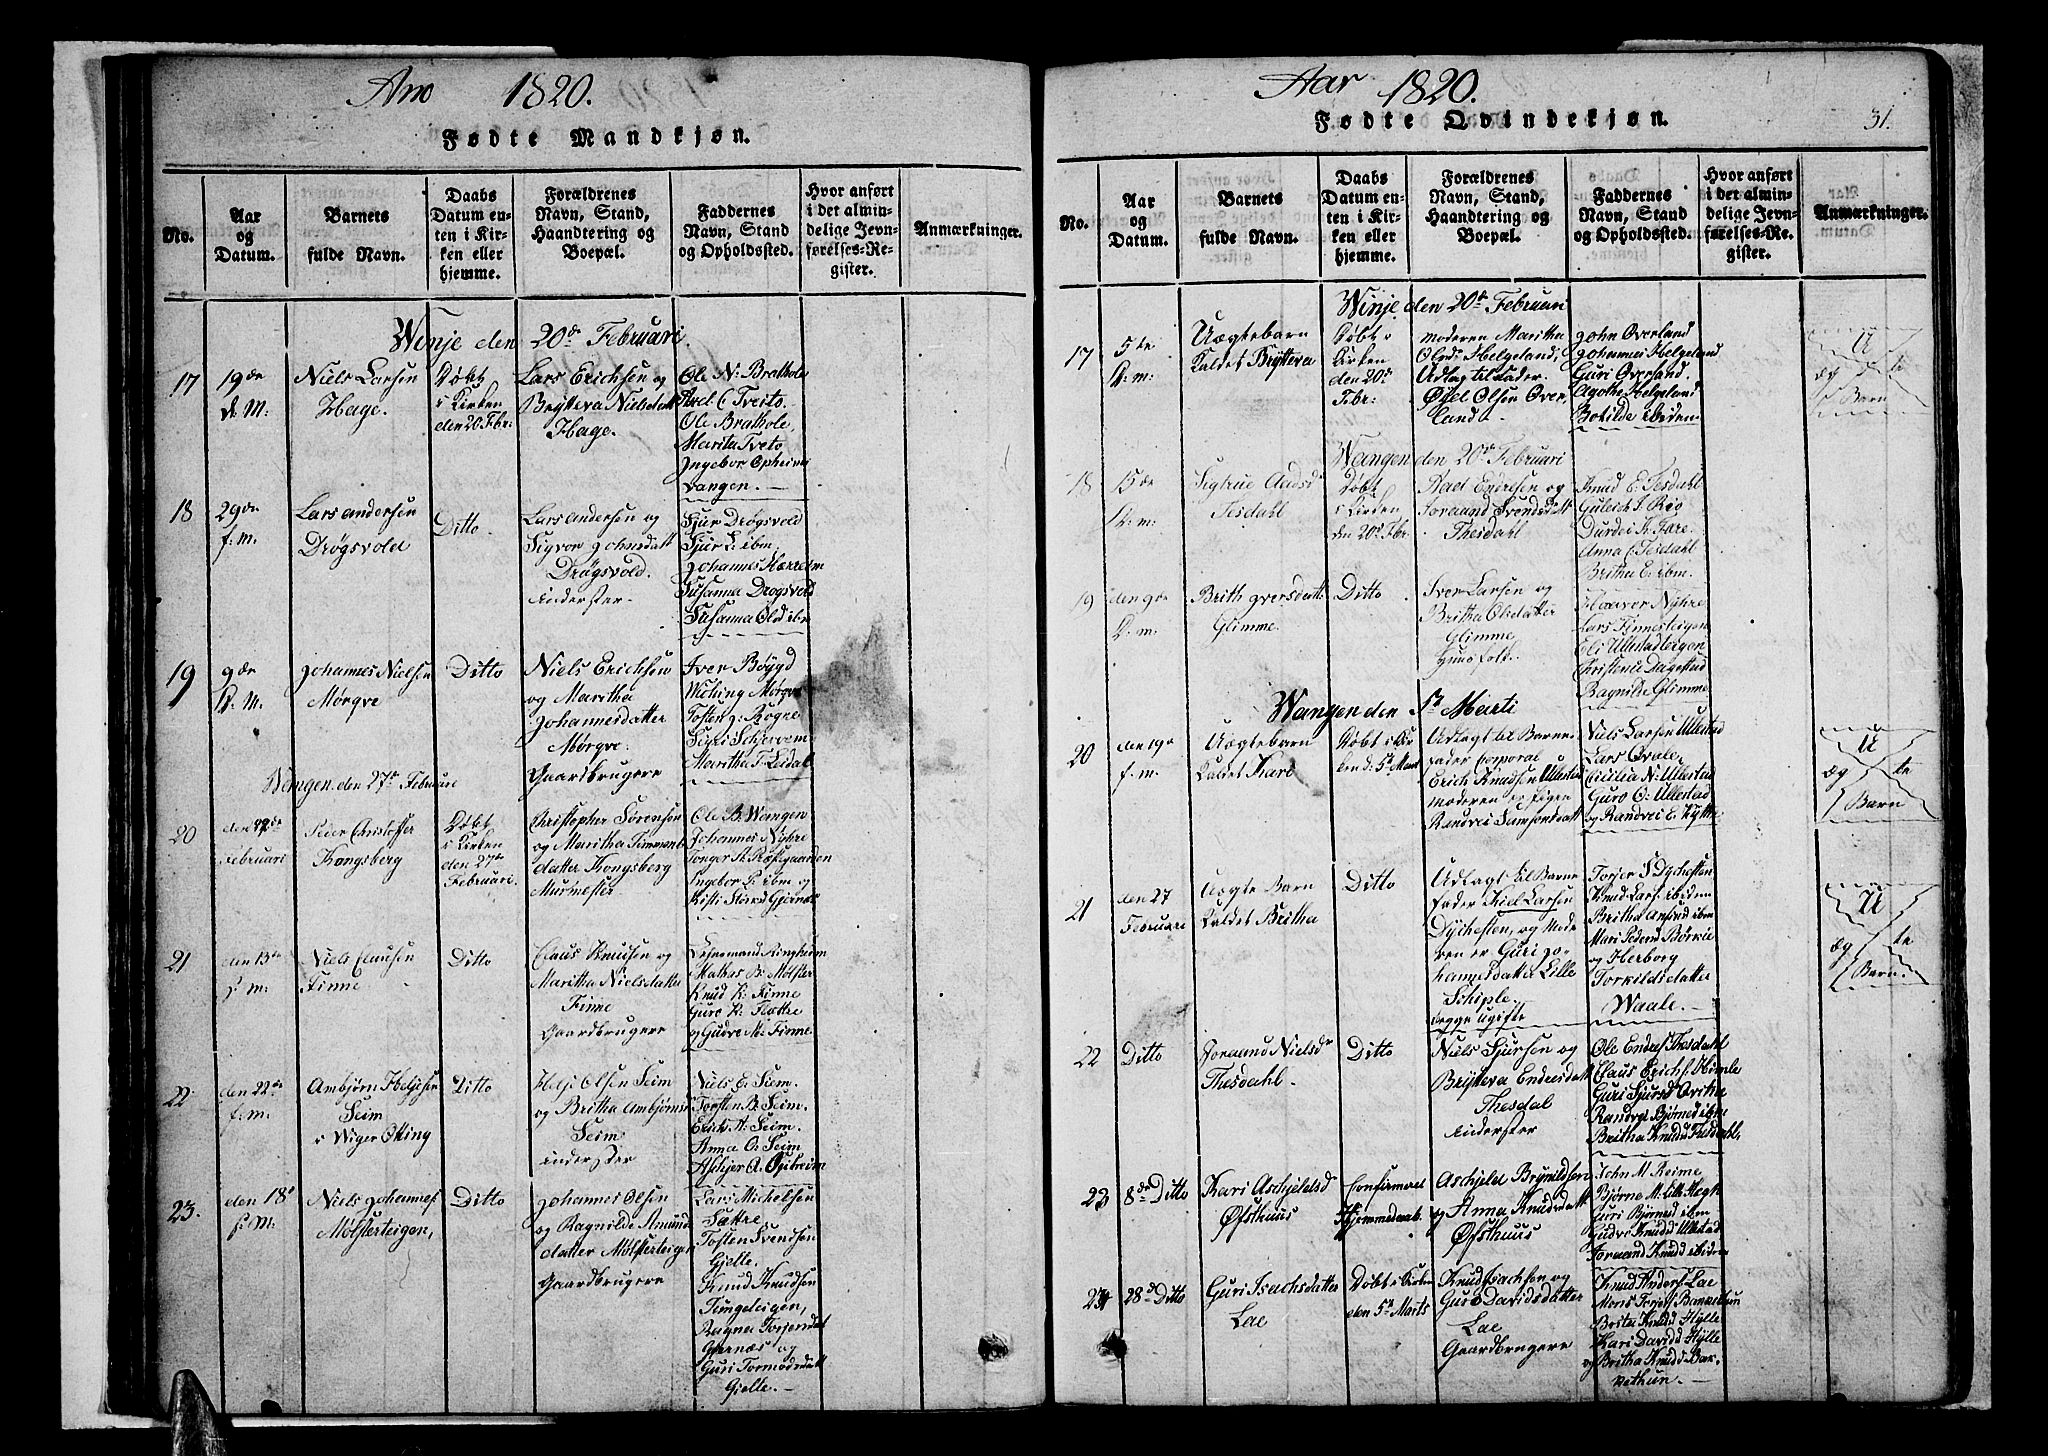 Ano 1820.
Fødte Mandkjøn.
No.
Aar
og
Datum.
Barnets
fulde Navn.
Daabs
Datum en-
ten i Kir-
ken eller
hjemme.
Forældrenes
Navn, Stand,
Haandtering og
Boepæl.
Faddernes
Navn, Stand
og Opholdssted.
Hvor anført
i det almin-
delige Jevn-
førelses-Re-
gister.
Anmærkninger.
Winje den 20de Februari.
17
19de
D. M.
Niels Larsen
Hage.
Døbt
i Kirken
den 20 Fbr:
Lars Erichsen og
Brytteva Nielsdatt
Hage.
Ole N: Brathole
Axel C Tveito.
Ole Brathole,
Marita Tveto
Ingebor Opheim
Vangen. —
18
29de
f. M.
Lars andersen
Drøgsvold
Ditto
Lars Andersen og
Sigvor Johnsdatt
Drøgsvold.
Inderster.
Sjur Drøgsvold
Sjur L: ibm.
Johannes Hærreim
Susanna Drøgsvold
Susanna Olsd ibm
19
9de
D. M.
Johannes Nielsen
Mørqve
Ditto
Niels Erichsen
og Maritha
Johannesdatter
Mørqve.
Gaardbrugere
Iver Bøygd
Wiching Mørqve
Tosten J: Rogne
Sigri Schjervem
Maritha T. Lidal
Wangen den 27de Februari
20
den 22de
Februari
Peter Christoffer
Kongsberg
Døbt
i Kirken
den 27de
Februari.
Christopher Sørensen
og Maritha Timmend
datter Kongsberg
Murmester
Ole B. Wangen
Johannes Nyhre
Tonger A. Præstgaarden
Ingebor L: ibm og
Kisti Gjernæs
21
den 13de
f. M:
Niels Clausen
Finne
Ditto
Claus Knudsen og
Maritha Nielsdatter
Finne
Gaardbrugere
Ringheim
Mathes B: Mølster
Knud K: Finne
Guro K: Flættre
og Gudve N: Finne
22
den 22de
f. M.
Ambjørn Heljesen
Seim
i Wiger Otting
Ditto
Helje Olsen Seim
og Britha Ambjørnsd
Seim
Inderster
Niels E. Siem.
Torsten B. Seim.
Erich A: Seim.
Anna O: Seim
Ashjer A. Opheim
23.
den 18d
f. M.
Niels Johannes
Mølsterteigen,
Ditto
Johannes Olsen
og Ragnilde Amund
datter Mølsterteigen
Gaardbrugere
Lars Michelsen
Sættre.
Tosten Svendsen
Gjelle.
Knud Knudsen
Tingelteigen,
Ragna Torjersdatt
Giernæs og
Guri Tormodsdatt
Gjelle. —
Aar 1820.
31.
Fødte Qvindekjøn.
No.
Aar
og
Datum.
Barnets
fulde Navn.
Daabs
Datum en-
ten i Kir-
ken eller
hjemme.
Forældrenes
Navn, Stand,
Haandtering og
Boepæl.
Faddernes
Navn, Stand
og Opholdssted.
Hvor anført
i det almin-
delige Jevn-
førelses-Re-
gister.
Anmærkninger.
Winje den 20de Februari
17
5te
D: m:
Uægtebarn
Kaldet Brytteva
Døbt i
Kirken
den 20d
Febr:
moderen Maritha
Olsdr Helgeland,
Udlag til Fader.
Olsen Over
land.
John Overland
Johannes Helgeland
Guri Overland.
Agothe Helgeland
Botilde ibiden
U
æg te
Barn
Wangen den 20de Februari
18
15de
D: m:
Sigtrue Aadsd
Tesdahl.
Døbt
i Kirken
den 20d Fbr.
Aad Enersen og
Joraand Svendsdatt
Thesdahl
Knud E. Tesdahl
Guleich J. Røo
Durdei K. Fare.
Anna E. Tesdahl
Britha E. ibm.
19
den 9de
D. m:
Brith Iversdatt
Glimme.
Ditto
Iver Larsen og
Britha Olsdatter
Glimme
Huusfolk.
Haaver Nyhre
Lars Finnesteigen
Eli Ullestad
Christense Dagestad
Ragnilde Glimme
Wangen den 5te Marti
20
den 19de
f. m.
Uægtebarn
Kaldet Kari
Døbt i Kir
ken d: 5te Mart
Udlagt til Barne
fader Corporal
Erich Knudsen Ullestad
moderen er Pigen
Randvei Samsonsdatt
Niels Larsen Ullestad
Lars Qvale
Cicilia N: Ullestad
Guro O: Ullestad
og Randvei E. Kyttre
U
æg te
Barn
21
den 27
Februari
Uægte Barn
Kaldet Britha
Ditto
Udlagt til Barne
fader Kiel Larsen
Dychesten, og Mode
ren er Guri Jo-
hannesdatter Lille
Schiple,
begge ugifte
Torjer S Dychesten
Knud Lars: ibiden
Britha ibm
Mari Peders Børkie
og Herborg
Torkildsdatter
Waale. —
U
æg te
Barn.
22
Ditto
Joraand Nielsdr
Thesdahl.
Ditto
Niels Sjursen og
Brytteva Endresdatt
Thesdal
Inderster
Ole Endres Thesdahl
Claus Erichs: Himle
Guri Sjursd Qvitne
Randvei Bjørnsd ibm
Britha Knudsd Tesdahl,
23
8de Ditto
Kari Aschjeldsd
Øfsthuus
Confirmeret
Hjemmedaab.
Aschjeld Brynildsen
og Anna Knudsdatt
Øfsthuus
John M. Reime
Bjørne M. Lille Hegh
Guri Bjørnsd ibm
Gudve Knudsd Ullestad
Joraand Knudsd ibiden
24
28d Ditto
Guri Isachsdatter
Lae
Døbt i Kirken
den 5te Marts
Knud Isachsen og
Guro Davidsdatter
Lae
Gaardbrugere
Knud Anders: Lae
Mons Torjers
Brita Knudsd Hylle
Kari Davidsd Hylle
og Britha Knudsd Bak-
kethun. —